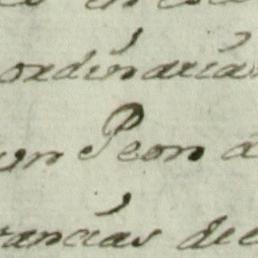 ordinaria
un Peon a
rancias de